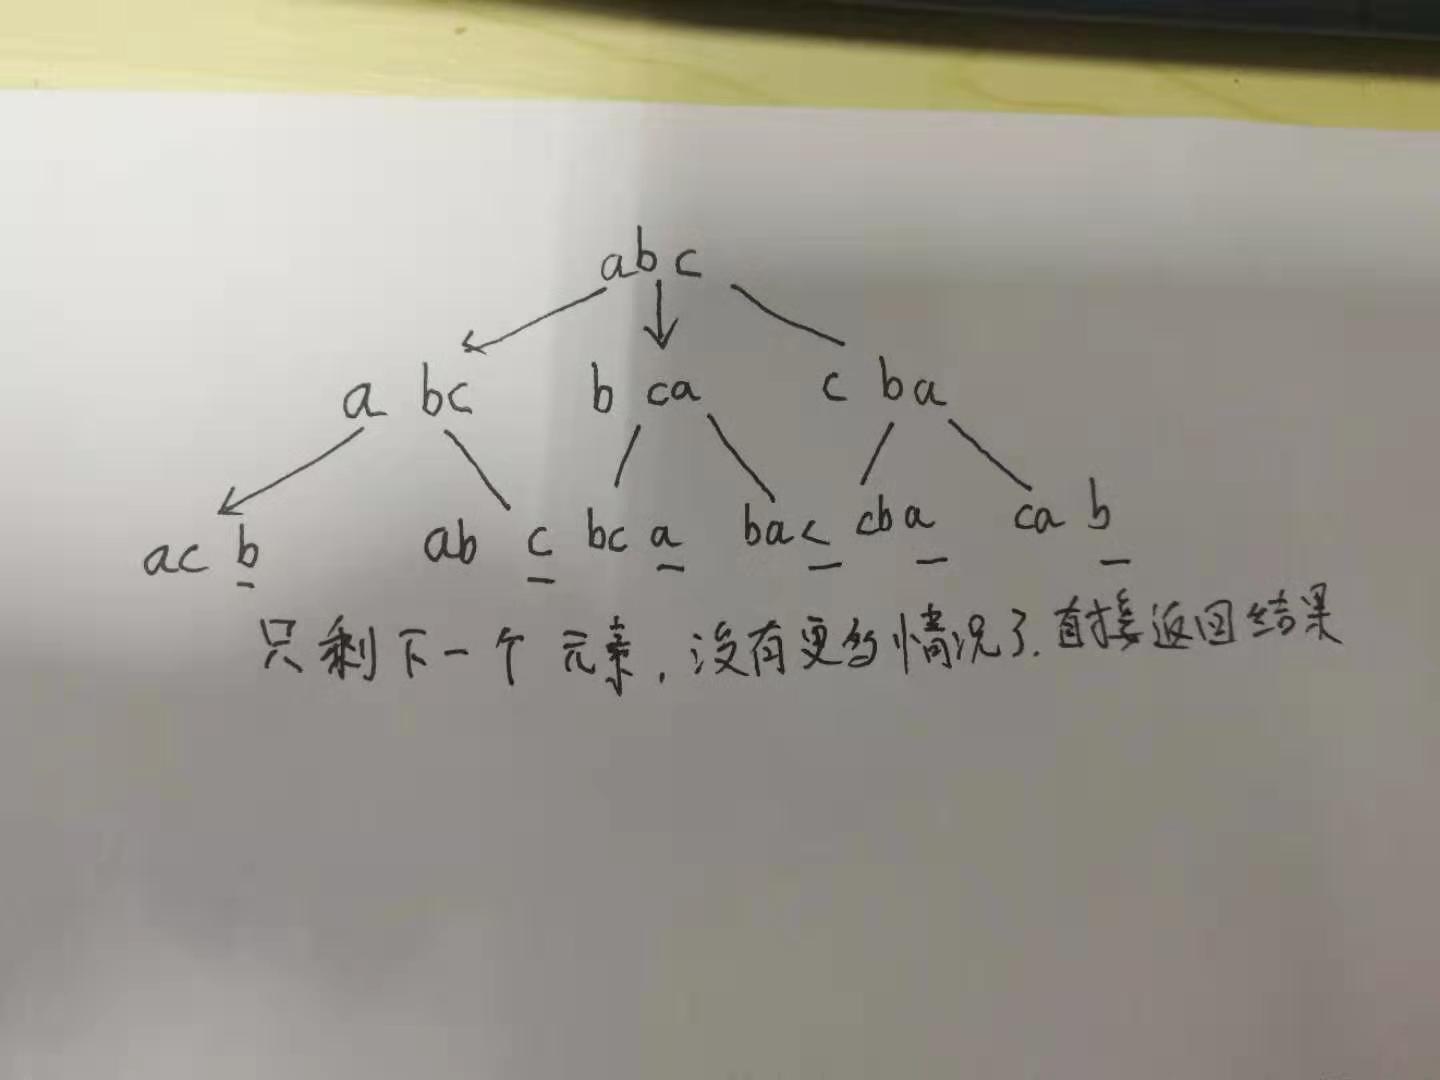 abc
a bc b ca c ba
ac b ab c bc a ba c cb a ca b
只剩下一个元素，没有更多情况了.直接返回结果